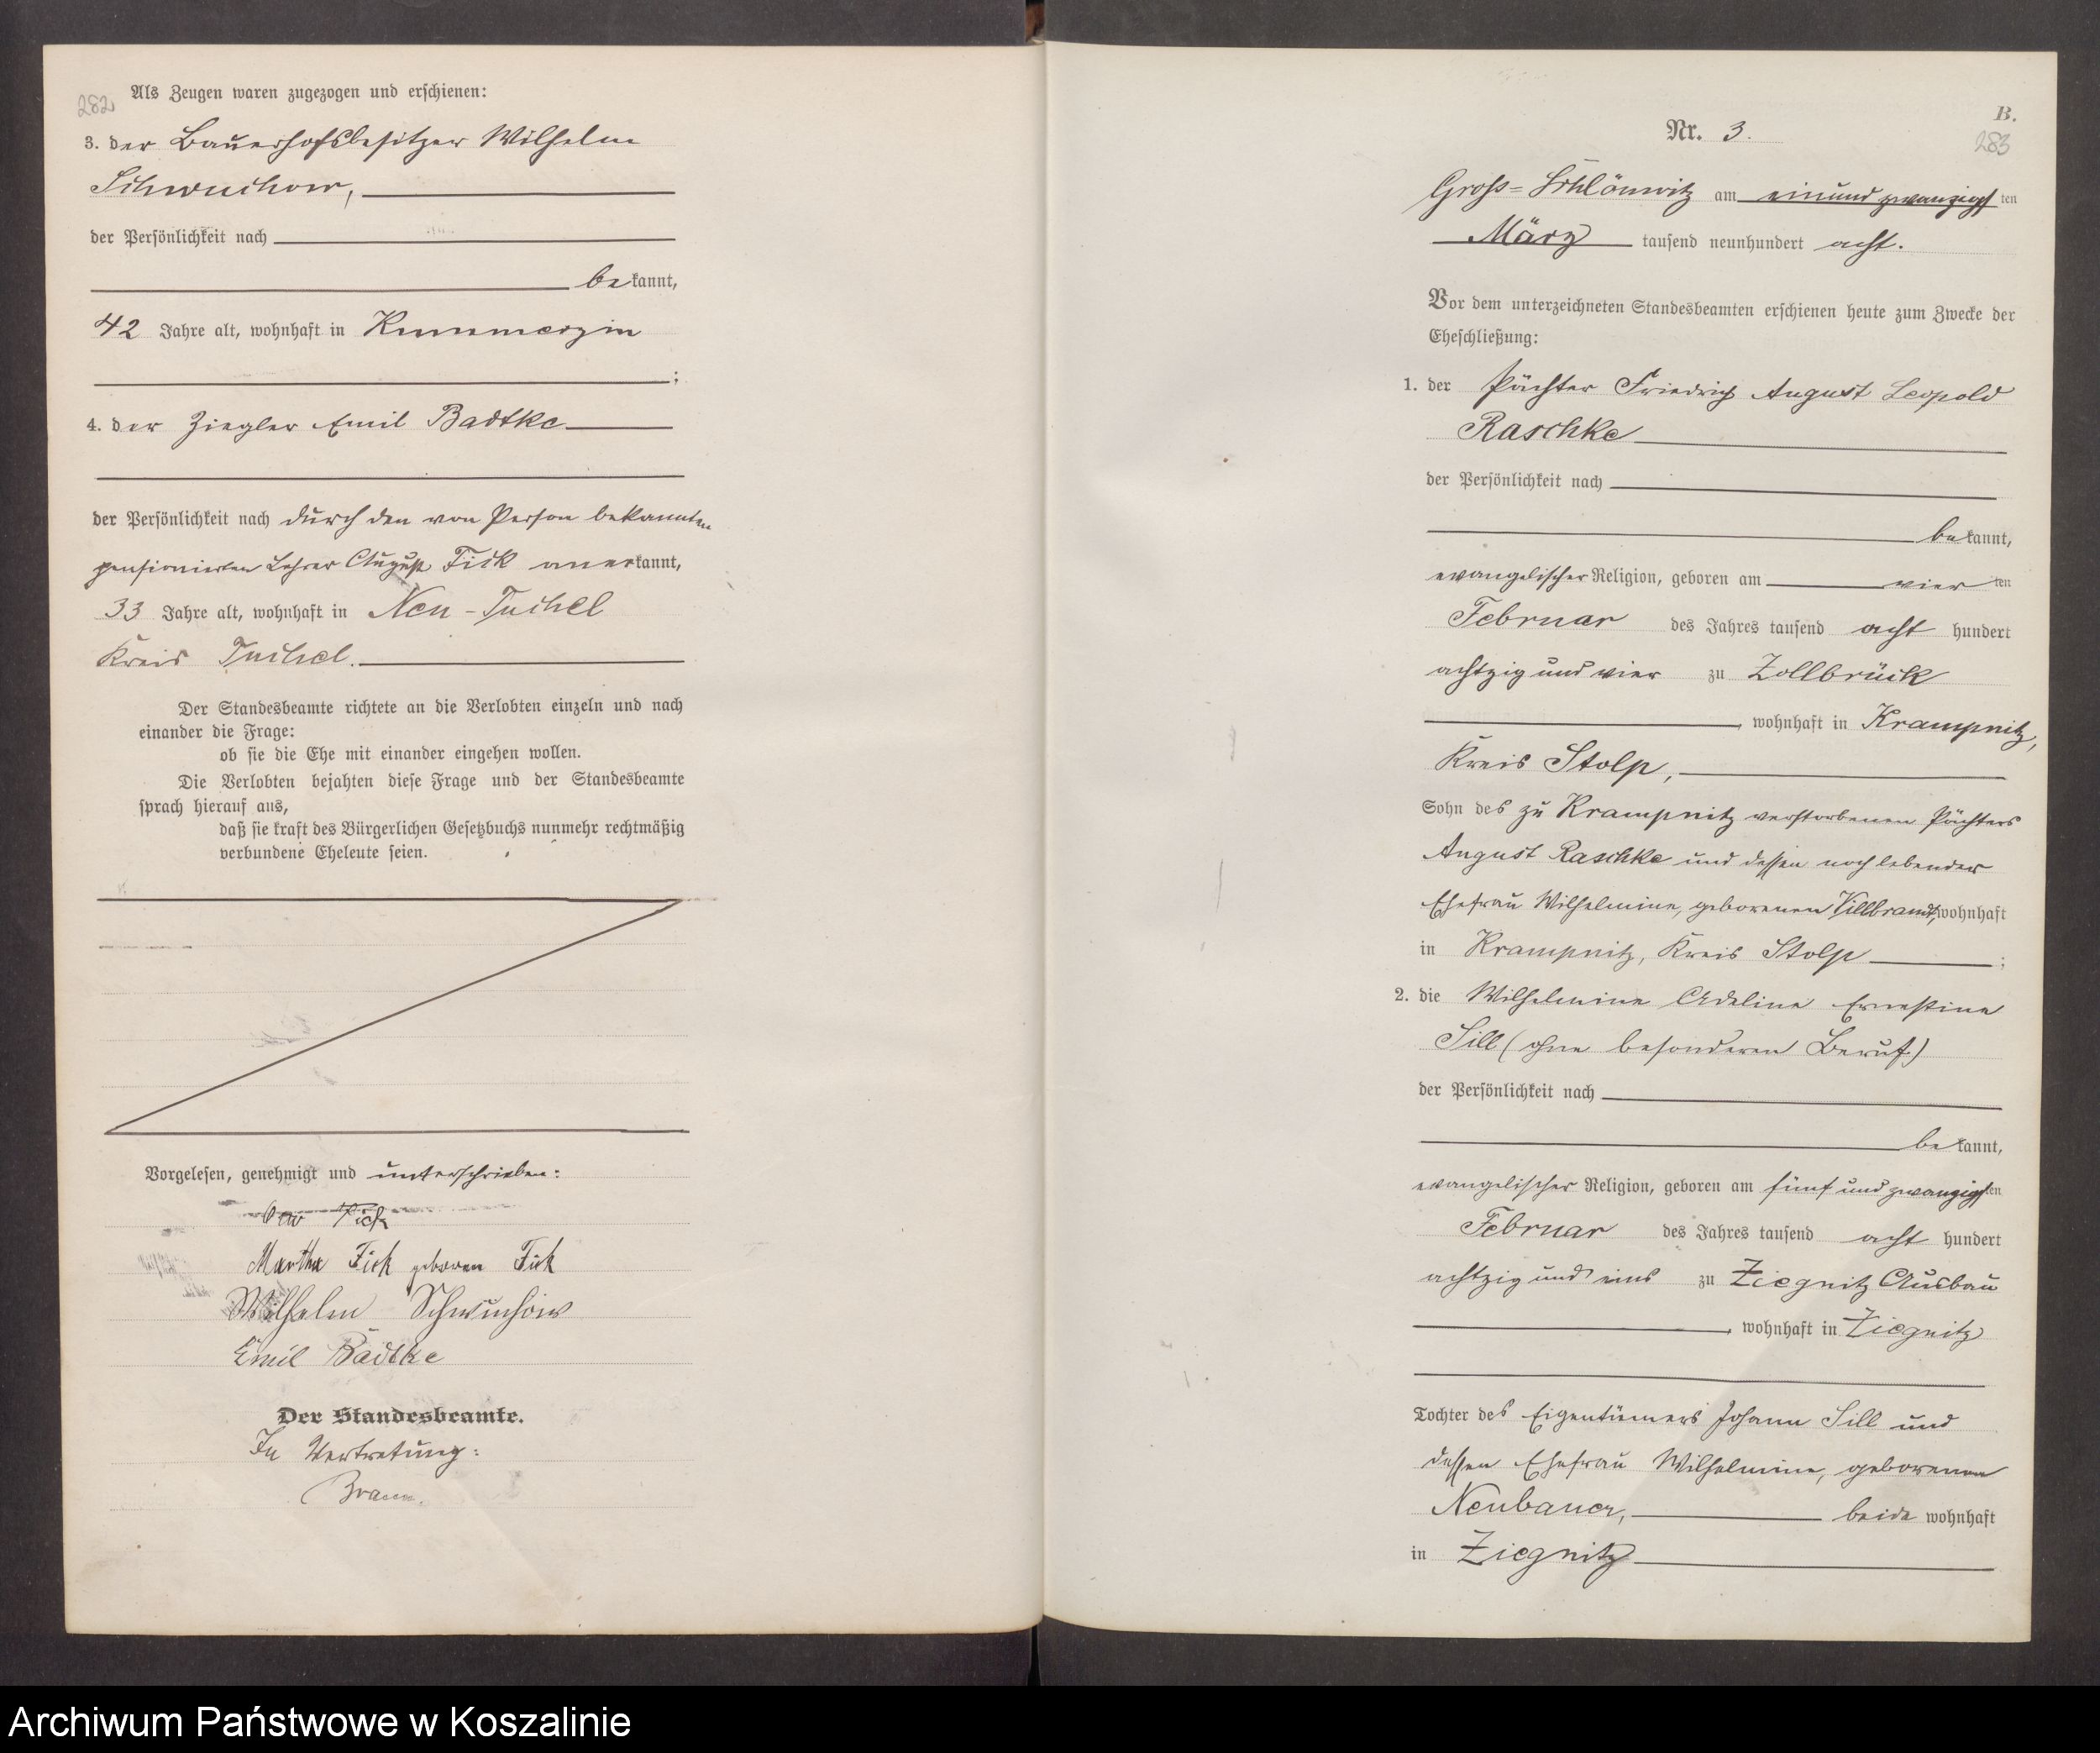 282
Als Zeugen waren zugezogen und erschienen:
3. der Bauerhofsbesitzer Wilhelm
Schwuchow,
der Persönlichkeit nach
bekannt,
42 Jahre alt, wohnhaft in Kummerzin
;
4. der Ziegler Emil Badtke
der Persönlichkeit nach durch den von Person bekannten
pensionierten Lehrer August Fick anerkannt,
33 Jahre alt, wohnhaft in Neu-Tuchel
Kreis Tuchel.
Der Standesbeamte richtete an die Verlobten einzeln und nach
einander die Frage:
ob sie die Ehe mit einander eingehen wollen.
Die Verlobten bejahten diese Frage und der Standesbeamte
sprach hierauf aus,
daß sie kraft des Bürgerlichen Gesetzbuchs nunmehr rechtmäßig
verbundene Eheleute seien.
Vorgelesen, genehmigt und unterschrieben:
Fick
Martha Fick geboren Fick
Wilhelm Schwuchow
Emil Badtke
Der Standesbeamte.
In Vertretung:
B.
Nr. 3.
283
Groß=Schlönwitz am einund zwanzigsten
März tausend neunhundert acht.
Vor dem unterzeichneten Standesbeamten erschienen heute zum Zwecke der
Eheschließung:
1. der Pächter Friedrich August Leopold
Raschke
der Persönlichkeit nach
bekannt,
evangelischer Religion, geboren am vierten
Februar des Jahres tausend acht hundert
achtzig und vier zu Zollbrück
, wohnhaft in Krampnitz,
Kreis Stolp,
Sohn des zu Krampnitz verstorbenen Pächters
August Raschke und dessen noch lebender
Ehefrau Wilhelmine, geborenen Villbrandt, wohnhaft
in Krampnitz, Kreis Stolp ;
2. die Wilhelmine Adeline Ernestine
Sill (ohne besonderen Beruf)
der Persönlichkeit nach
bekannt,
evangelischer Religion, geboren am fünf und zwanzigsten
Februar des Jahres tausend acht hundert
achtzig und eins zu Ziegnitz Ausbau
, wohnhaft in Ziegnitz
Tochter des Eigentümers Johann Sill und
dessen Ehefrau Wilhelmine, geborenen
Neubauer, beide wohnhaft
in Ziegnitz
Archiwum Państwowe w Koszalinie